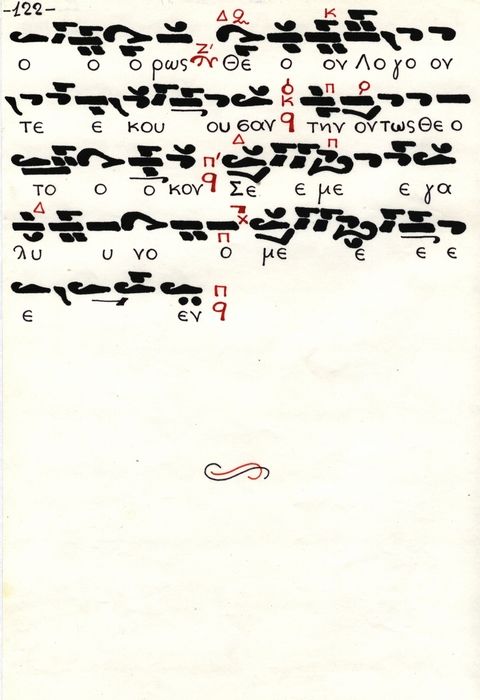 -122-
ο ο ο ρως Θε ο ον Λο γο ον
τε ε κου ου σαν την οντως Θε ο
το ο ο κον Σε ε με ε γα
λυ υ νο ο με ε ε ε
ε εν